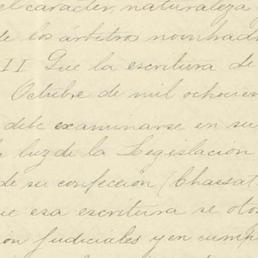 el caracter, naturaleza
de los árbitros nombrad
II Que la escritura de
Octubre de mil ochocien
debe examinarse en su
luz de la Legislacion
de su confección (Chassat
que esa escritura se oto
ion judiciales y en cump